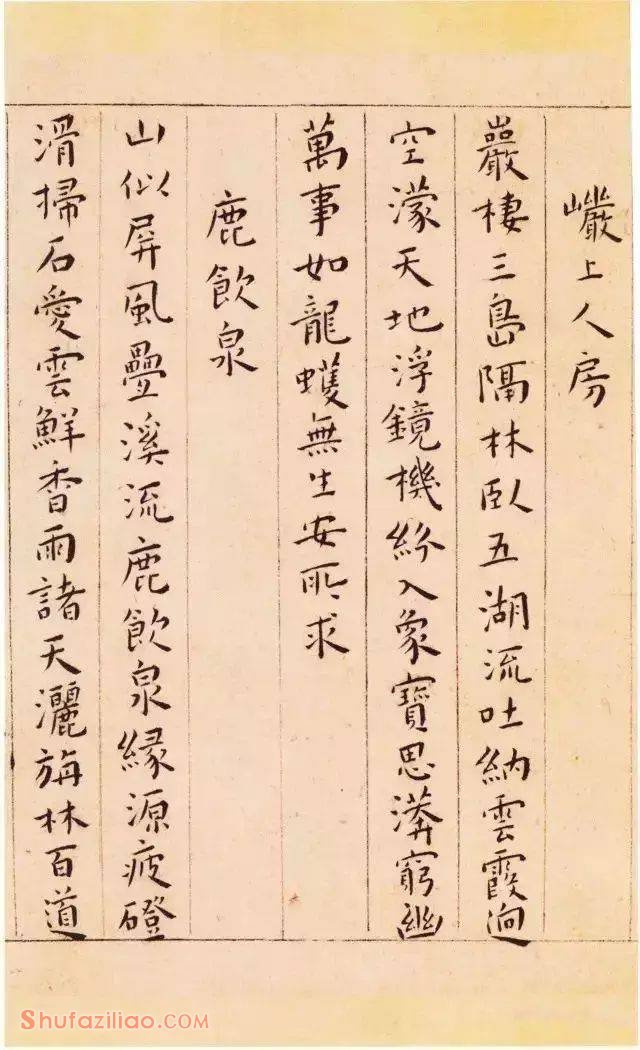 巗上人房
巖棲三島隔林臥五湖流吐納雲霞迥
空濛天地浮鏡機紛入象寶思漭窮幽
萬事如龍蠖無生安所求
鹿飲泉
山似屏風疊溪流鹿飲泉緣源疲磴
滑掃石愛雲鮮香雨諸天灑旃林百道
Shufaziliao.COM